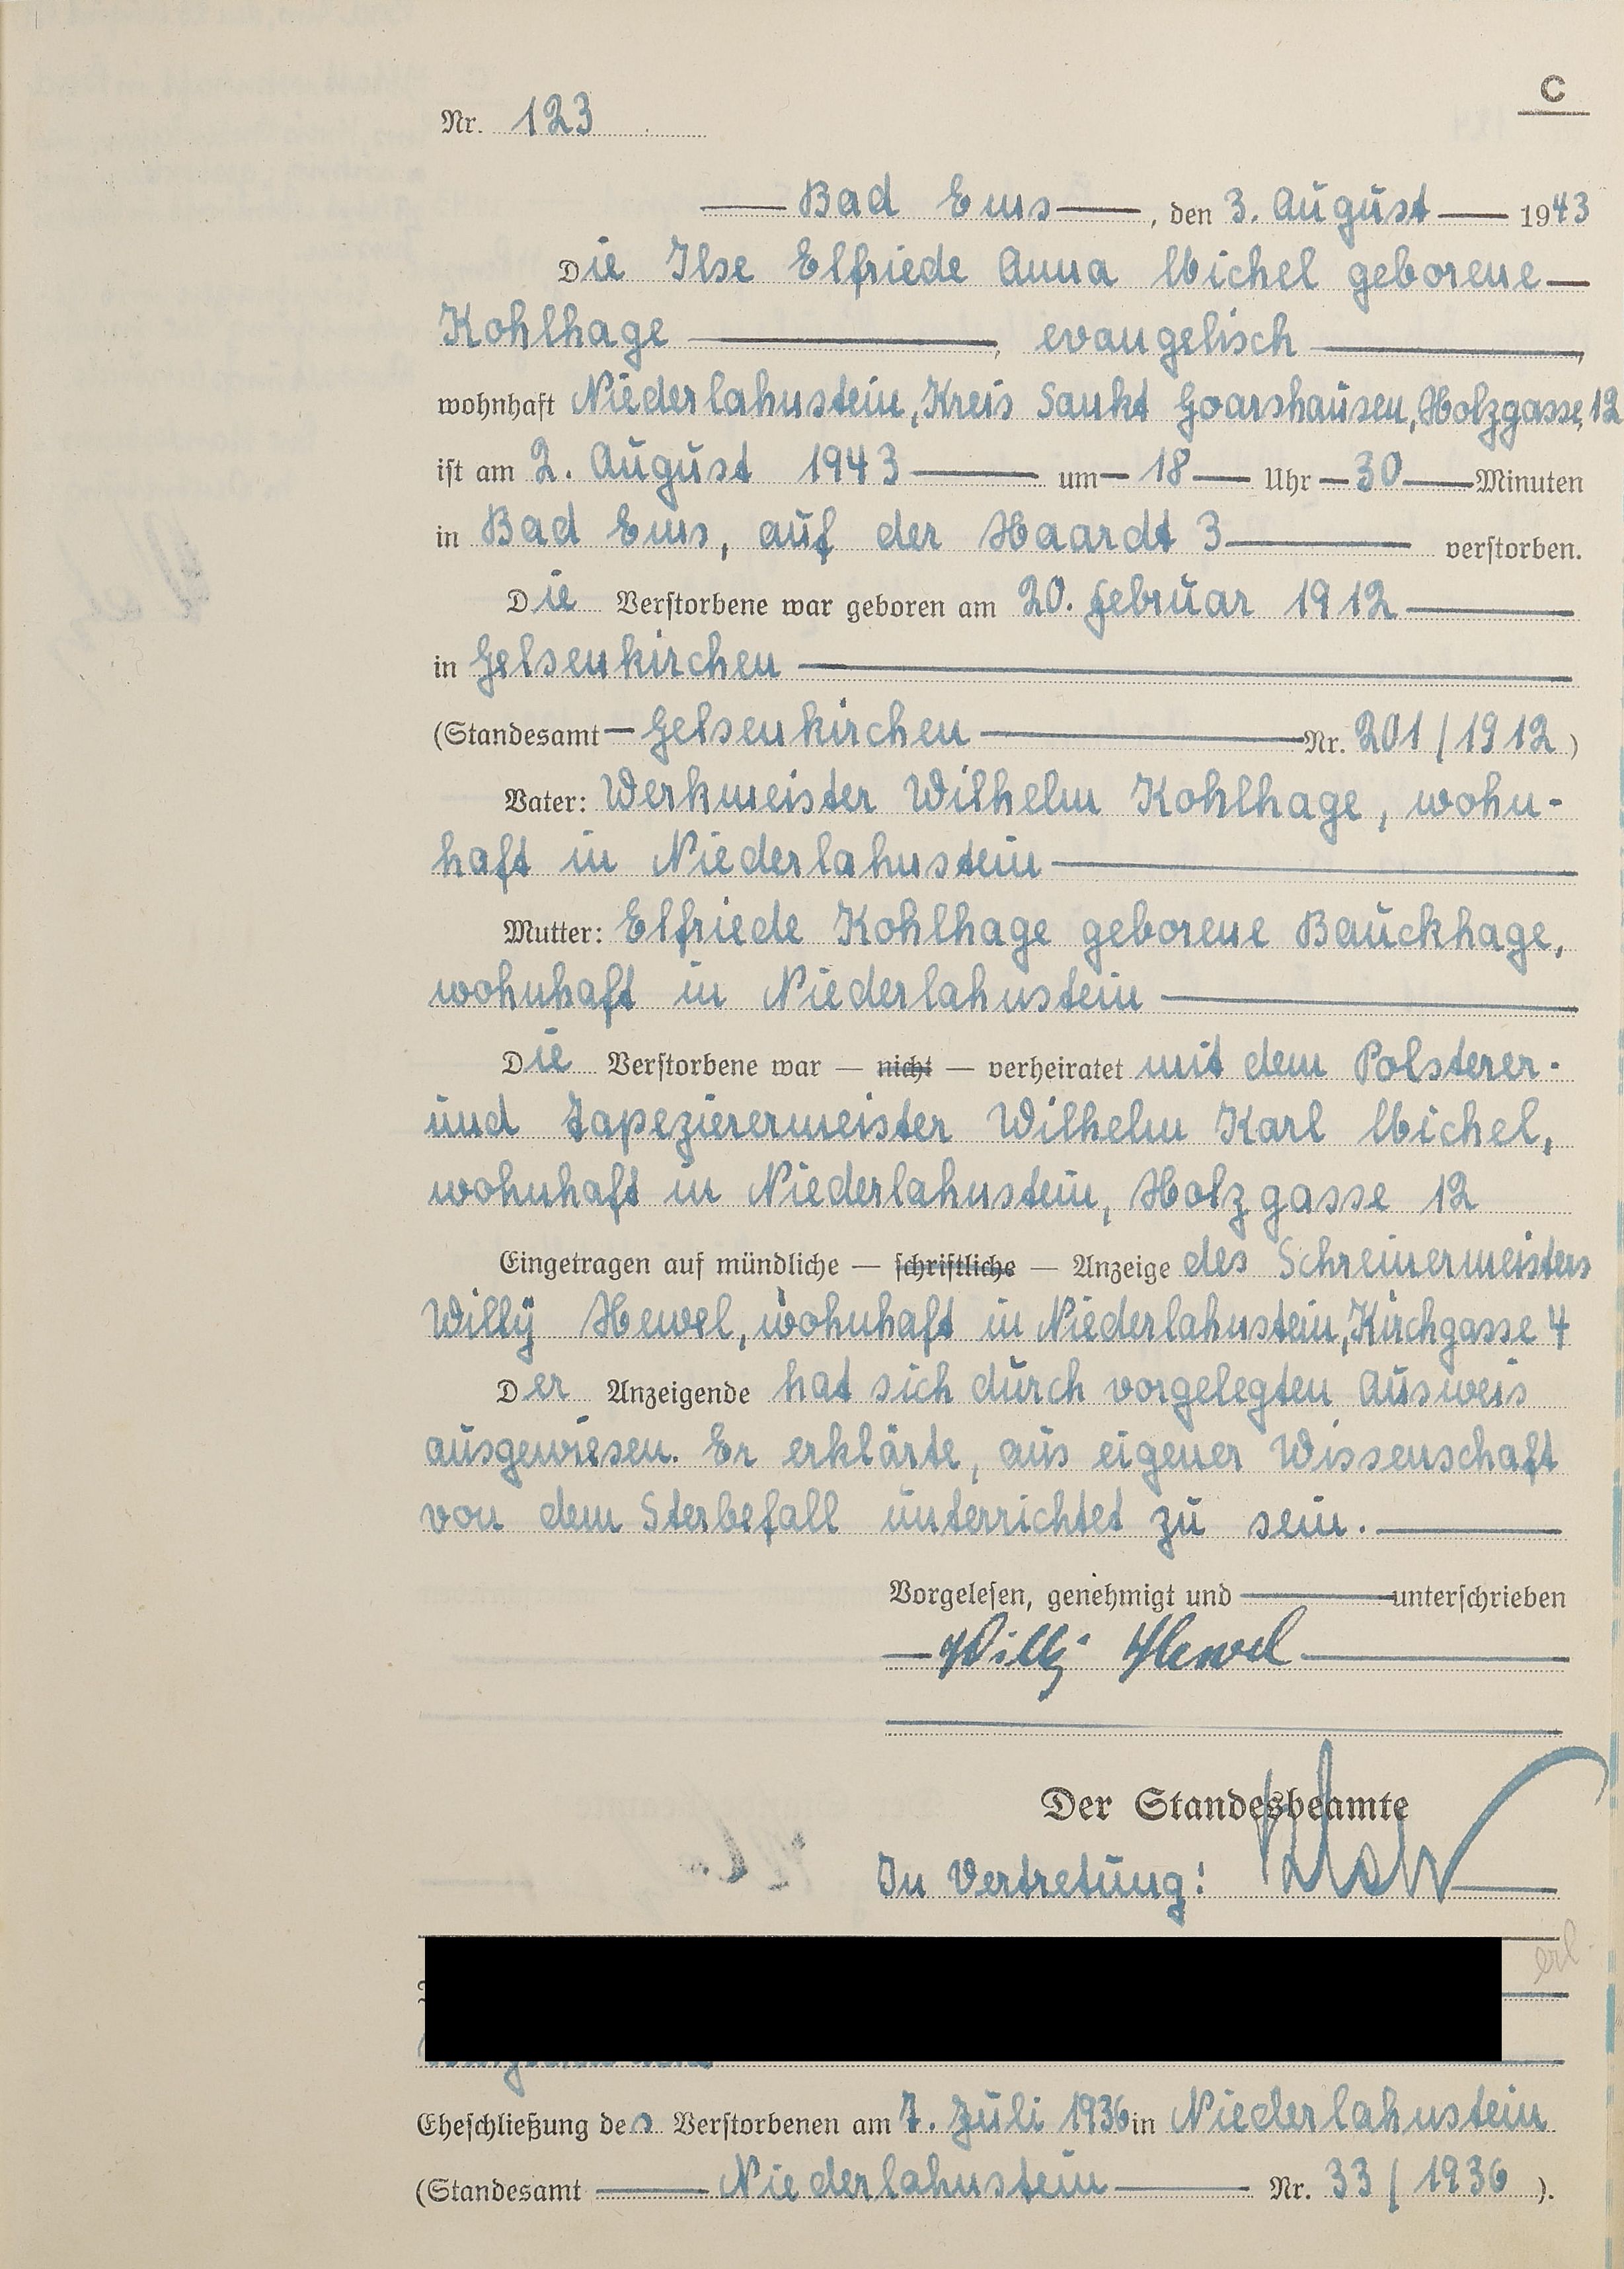 C
Nr. 123
Bad Ems, den 3. August 1943
Die Ilse Elfriede Anna Michel geborene
Kohlhage, evangelisch,
wohnhaft Niederlahnstein, Kreis Sankt Goarshausen, Holzgasse, 12
ist am 2. August 1943 um 18 Uhr 30 Minuten
in Bad Ems, auf der Haardt 3 verstorben.
Die Verstorbene war geboren am 20. Februar 1912
in Gelsenkirchen
(Standesamt Gelsenkirchen Nr. 201/1912)
Vater: Werkmeister Wilhelm Kohlhage, wohn-
haft in Niederlahnstein
Mutter: Elfriede Kohlhage geborene Bauckhage,
wohnhaft in Niederlahnstein
Die Verstorbene war — nicht — verheiratet mit dem Polsterer-
und Tapezierermeister Wilhelm Karl Michel,
wohnhaft in Niederlahnstein, Holzgasse 12
Eingetragen auf mündliche — schriftliche — Anzeige des Schreinermeisters
Willy Hewel, wohnhaft in Niederlahnstein, Kirchgasse 4
Der Anzeigende hat sich durch vorgelegten Ausweis
ausgewiesen. Er erklärte, aus eigener Wissenschaft
von dem Sterbefall unterrichtet zu sein.
Vorgelesen, genehmigt und unterschrieben
Willy Hewel
Der Standesbeamte
In Vertretung:
erl.
Eheschließung des Verstorbenen am 7. Juli 1936 in Niederlahnstein
(Standesamt Niederlahnstein Nr. 33/1936).